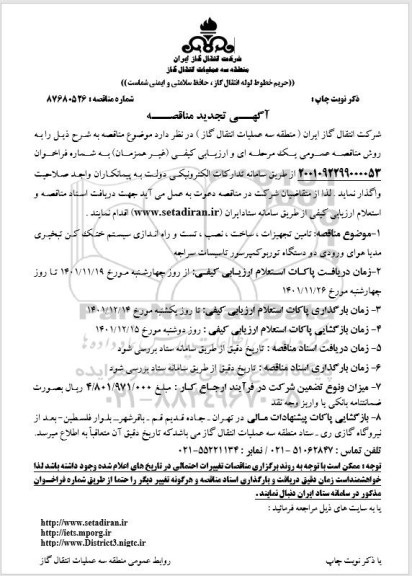 شرکت انتقال گاز ایران
منطقه سه عملیات انتقال گاز
((حریم خطوط لوله انتقال گاز ، حافظ سلامتی و ایمنی شماست))
ذکر نوبت چاپ :
شماره مناقصه : ۸۷۶۸۰۵۲۶
آگهـی تجدید مناقصـــه
شرکت انتقال گاز ایران ( منطقه سه عملیات انتقال گاز ) در نظر دارد موضوع مناقصه به شرح ذیل را به
روش مناقصه عمـومی یـک مرحلـه ای و ارزیـابی کیفـی (غیـر همزمـان) بـه شـماره فراخـوان
۲۰۰۱۰۹۲۲۹۹۰۰۰۰۵۳ از طریق سامانه تدارکات الکترونیکـی دولـت بـه پیمانکـاران واجـد صـلاحیت
واگذار نماید . لذا از متقاضیان شرکت در مناقصه دعوت به عمل می آید جهت دریافت اسناد مناقصـه و
استعلام ارزیابی کیفی از طریق سامانه ستادایران (www.setadiran.ir) اقدام نمایند .
۱-موضوع مناقصه: تامین تجهیزات ، ساخت ، نصب ، تست و راه اندازی سیستم خنـک کـن تبخیـری
مدیا هوای ورودی دو دستگاه توربوکمپرسور تاسیسات سراجه
۲-زمان دریافـت پاکـات اسـتعلام ارزیـابی کیفـی: از روز چهارشـنبه مـورخ ۱۴۰۱/۱۱/۱۹ تـا روز
چهارشنبه مورخ ۱۴۰۱/۱۱/۲۶
۳- زمان بارگذاری پاکات استعلام ارزیابی کیفی: تا روز یکشنبه مورخ ۱۴۰۱/۱۲/۱۴
۴- زمان بازگشایی پاکات استعلام ارزیابی کیفی : روز دوشنبه مورخ ۱۴۰۱/۱۲/۱۵
۵- زمان دریافت اسناد مناقصه : تاریخ دقیق از طریق سامانه ستاد بررسی شود
۶- زمان بارگذاری اسناد مناقصه : تاریخ دقیق از طریق سامانه ستاد بررسی شود
۷- میزان ونوع تضمین شرکت در فرآیند ارجـاع کـار : مبلـغ ۴/۸۰۱/۹۷۱/۰۰۰ ریـال بصـورت
ضمانتنامه بانکی یا واریز وجه نقد
۸- بازگشایی پاکات پیشنهادات مـالی در تهـران ـ جـاده قـدیم قـم ـ باقرشهرـ بلـوار فلسطین-بعـد از
نیروگاه گازی ری ـ ستاد منطقه سه عملیات انتقال گاز می باشدکه تاریخ دقیق آن متعاقباً به اطلاع میرسد.
تلفن تماس : ۵۱۰۶۲۸۴۷- ۰۲۱ / نمابر : ۵۵۲۲۱۱۳۴-۰۲۱
توجه : ممکن است با توجه به روند برگزاری مناقصات تغییرات احتمالی در تاریخ های اعلام شده وجود داشته باشد لذا
خواهشمنداست زمان دقیق دریافت و بارگذاری اسناد مناقصه و هرگونه تغییر دیگر را حتما از طریق شماره فراخـوان
مذکور در سامانه ستاد ایران دنبال نمایند .
یا به سایت های ذیل مراجعه فرمائید :
http://www.setadiran.ir
http://iets.mporg.ir
http://www.District3.nigtc.ir
یا ذکر نوبت چاپ
روابط عمومی منطقه سه عملیات انتقال گاز